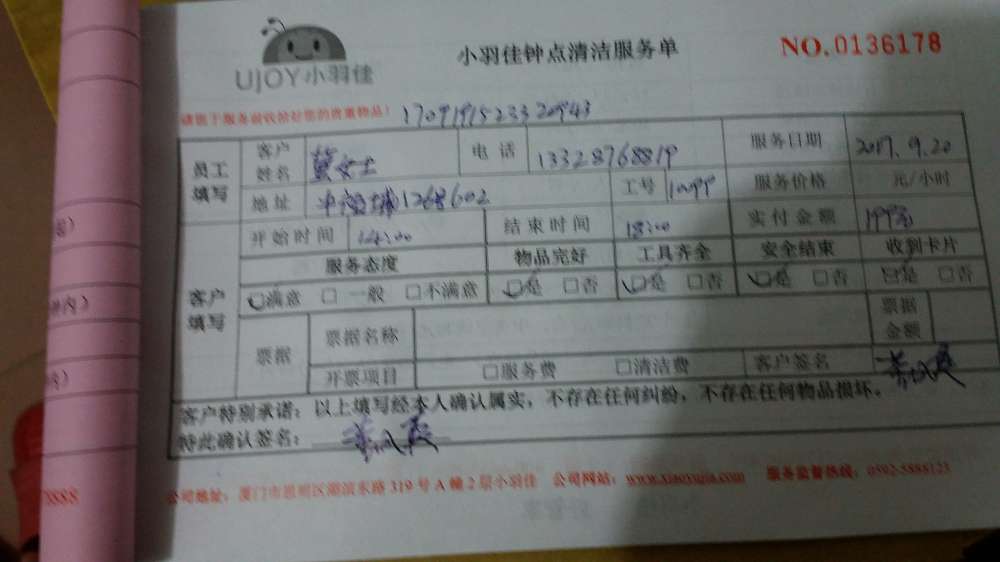 UJOY小羽佳
小羽佳钟点清洁服务单
NO.0136178
请您于服务前收拾好您的贵重物品!
17091915233320943
员工填写
客户姓名 女士 电话 13328768819 服务日期 2017.9.20
地址 1268602 工号 服务价格 元/小时
客户填写
开始时间 14:00 结束时间 18:00 实付金额
服务态度 物品完好 工具齐全 安全结束 收到卡片
□满意 □一般 □不满意 □是 □否 □是 □否 □是 □否 □是 □否
票据 票据名称 票据金额
开票项目 □服务费 □清洁费 客户签名
客户特别承诺:以上填写经本人确认属实,不存在任何纠纷,不存在任何物品损坏。
特此确认签名:
公司地址:厦门市思明区湖滨东路319号A幢2层小羽佳 公司网站:www.xiaoyujia.com 服务监督热线:0592-5888123
8888